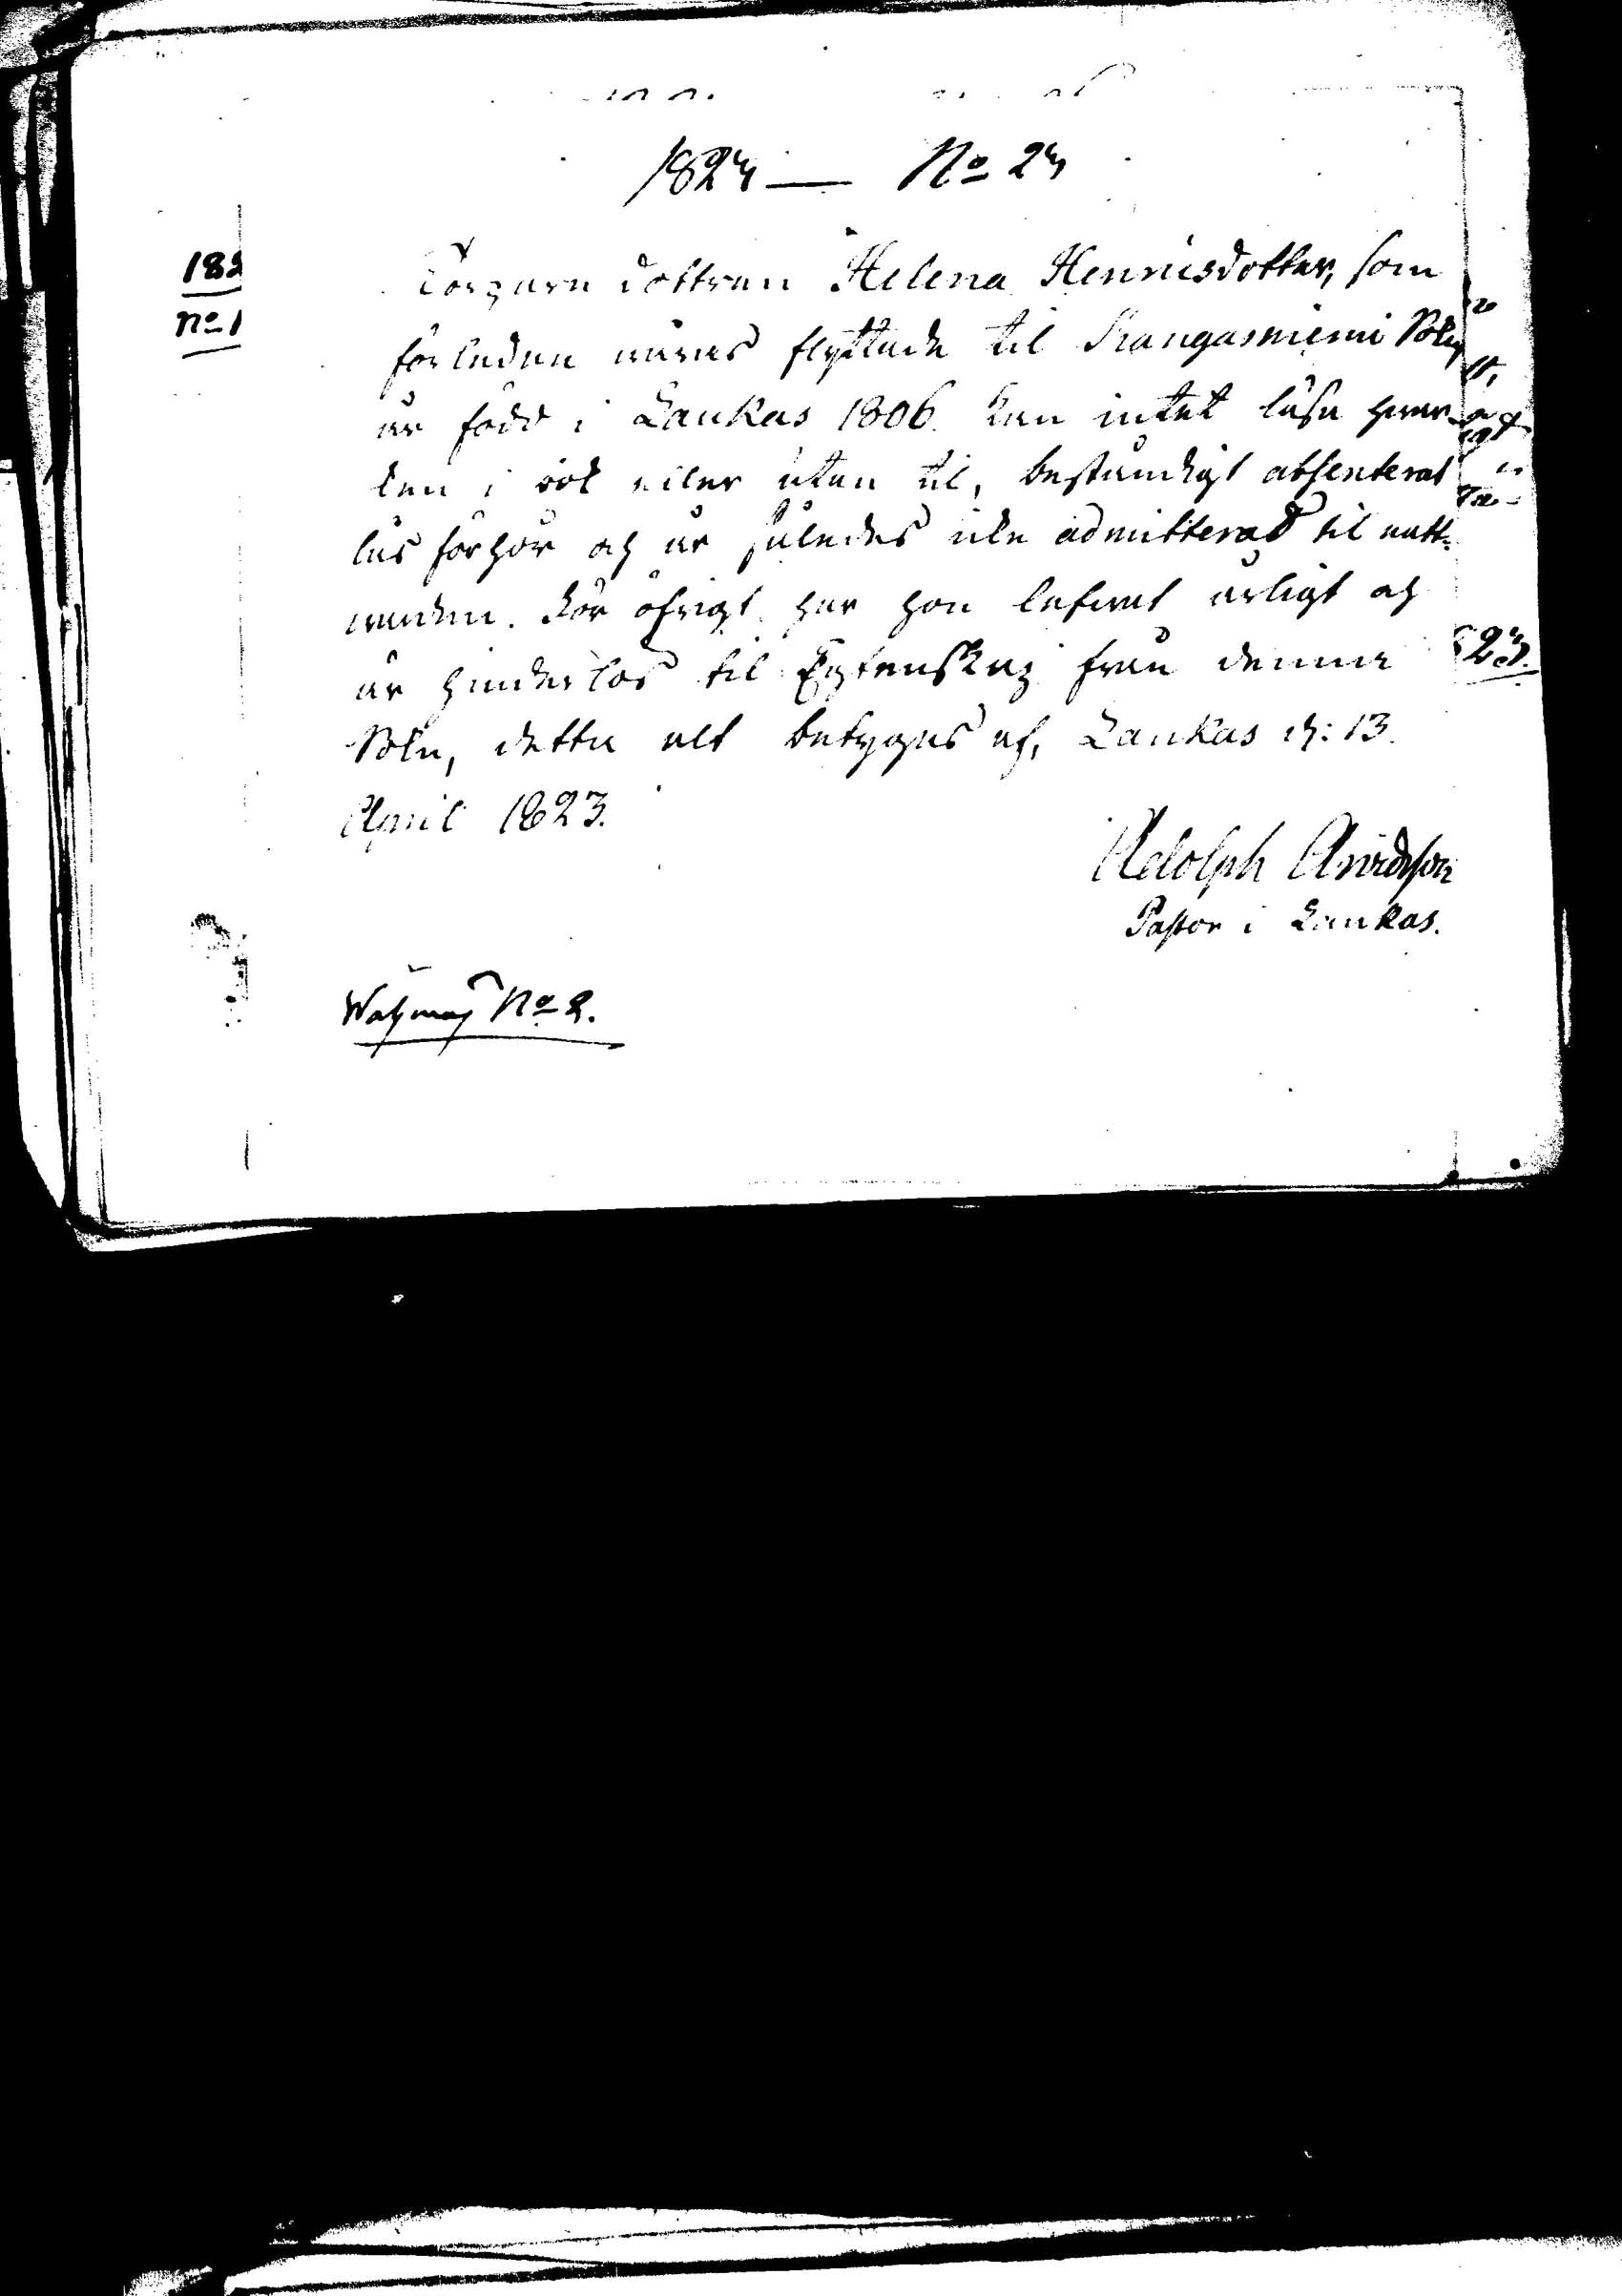 1823 — No 23
182
No 1
Torpare dottren Helena Henricsdotter, som
förleden wåras flyttade til Kangasniemi Sokn
är född i Laukas 1806. kan intet läsa hwar-
ken i bok eller utan til, beständigt absenterat
läsförhör och är således icke admitterad til natt-
warden. För öfrigt har hon lefwat ärligt och
är hinderlös til Ägtenskap från denna
Sokn, detta alt betygas af, Laukas d: 13.
April 1823.
Adolph Arvidsson
Pastor i Laukas.
No 2.
23.